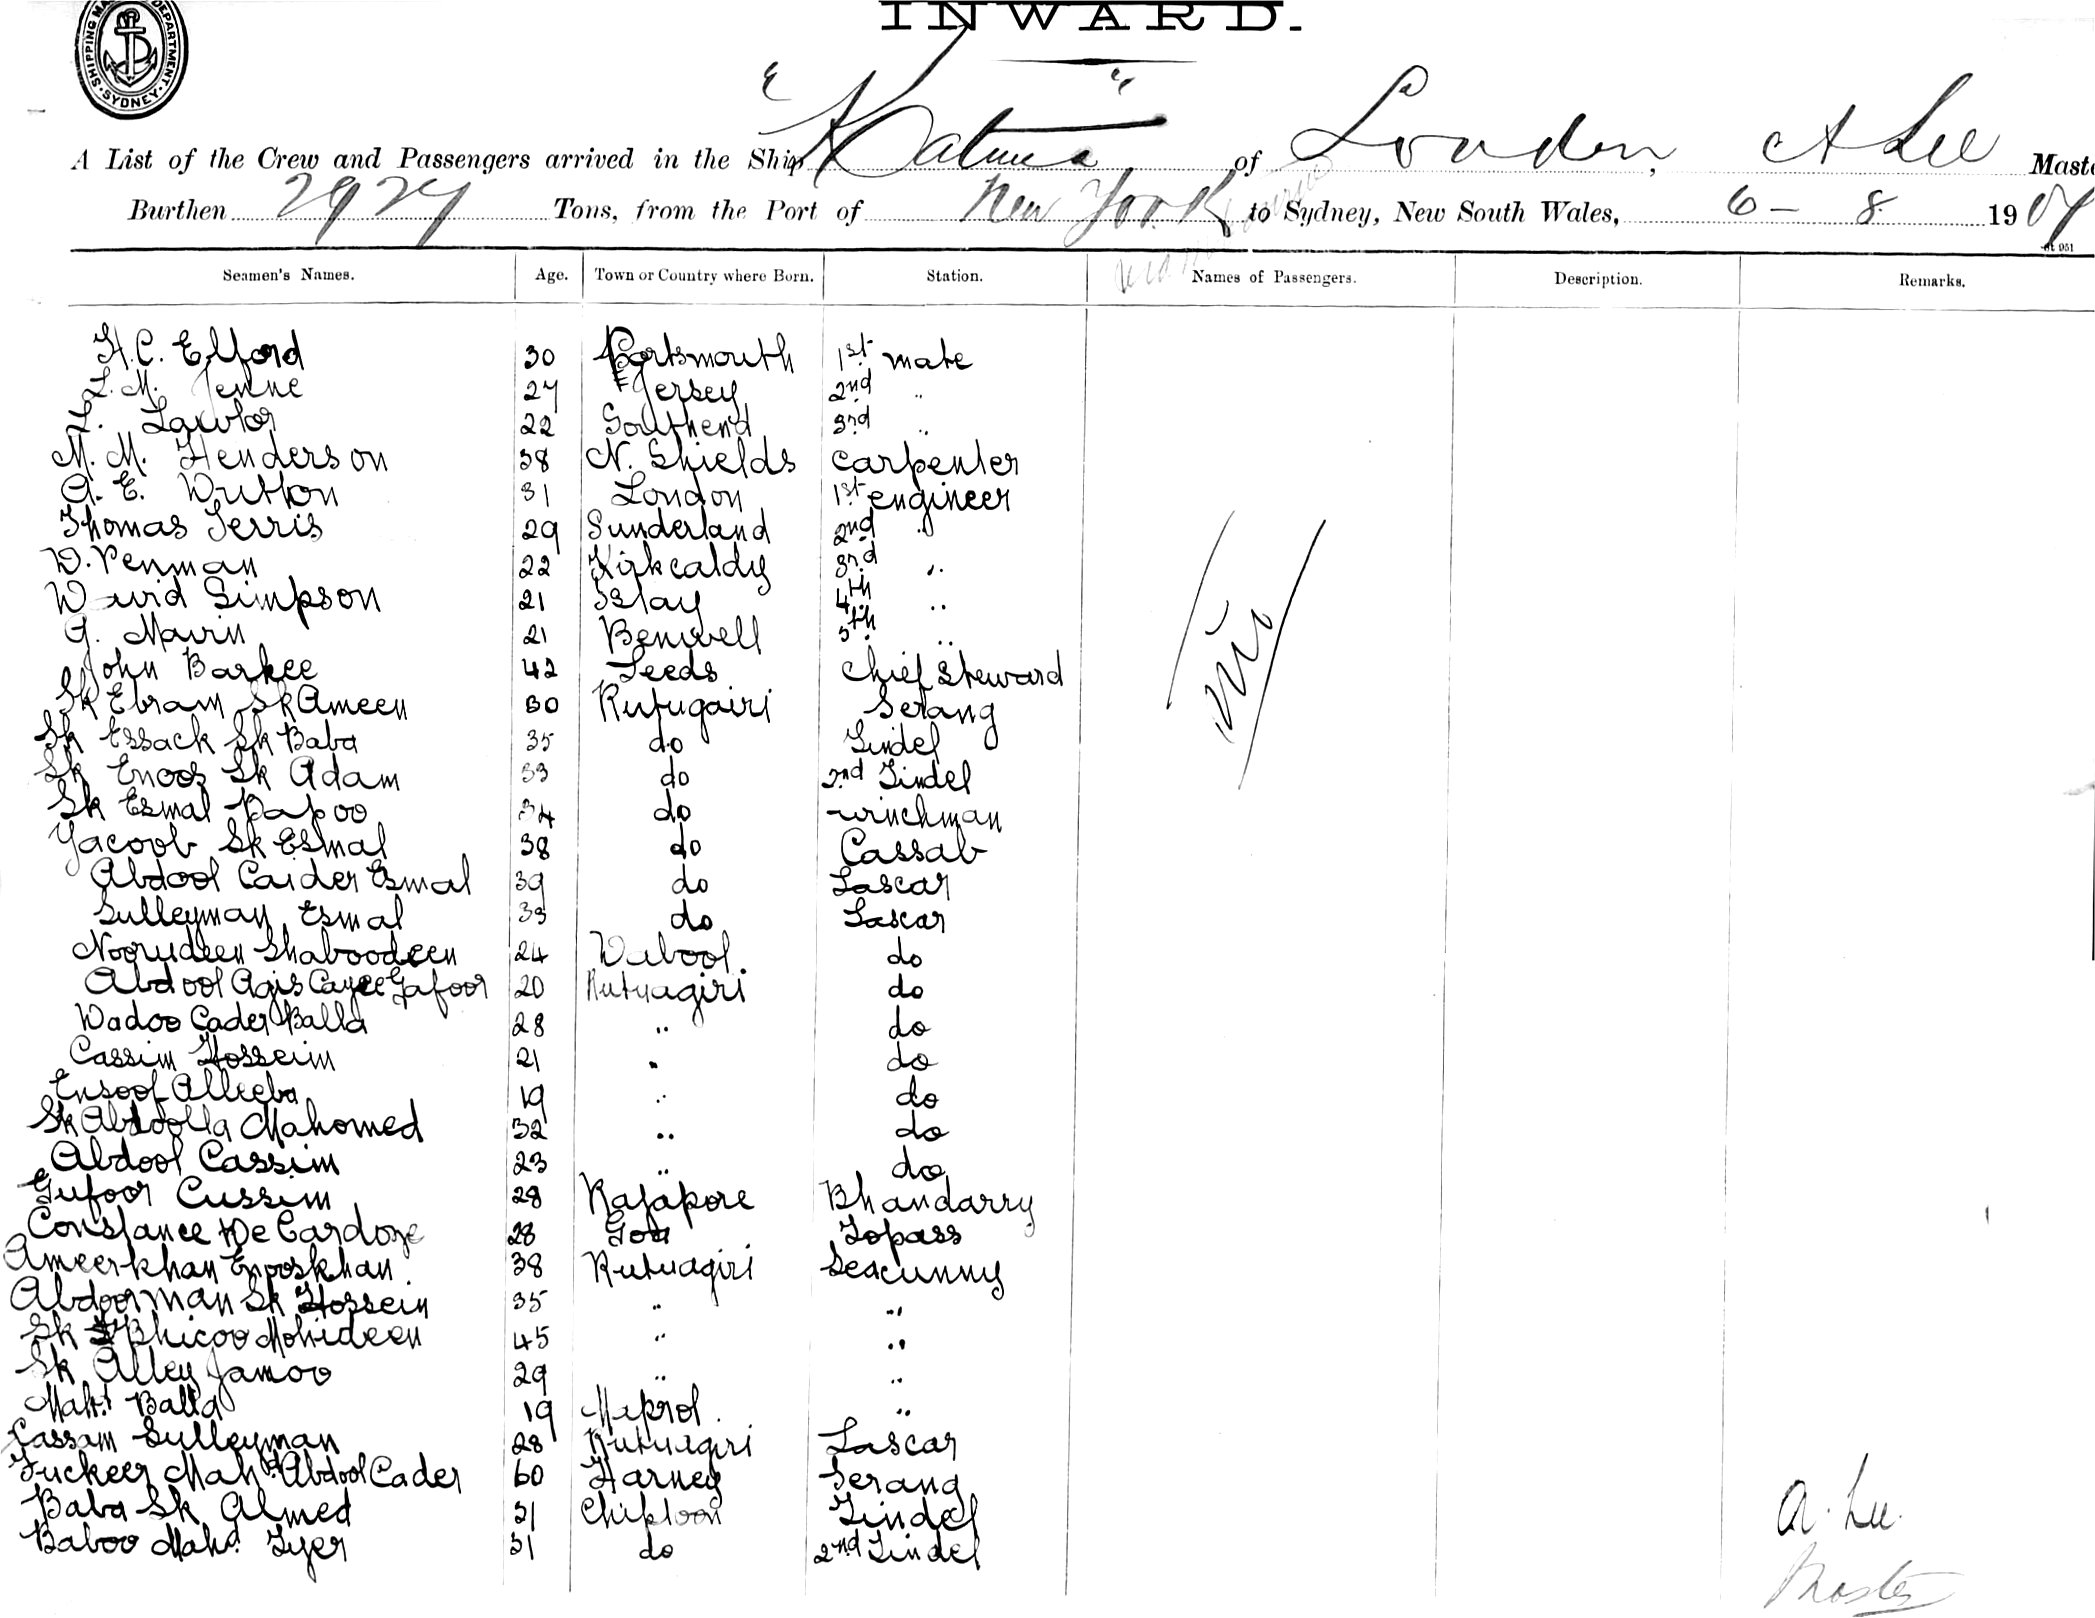 SHIPPING MA DEPARTMENT. SYDNEY.
INWARD.
A List of the Crew and Passengers arrived in the Ship "Katuna" of London, A Lee Maste
Burthen 2927 Tons, from the Port of New York to Sydney, New South Wales, 6 - 8 1907
st 951
Seamen's Names. Age. Town or Country where Born. Station. Names of Passengers. Description. Remarks.
H.C. Elford 30 Portsmouth 1st mate
L. M. Jenne 27 Jersey 2nd "
L. Lawlor 22 Southend 3rd "
M. M. Henderson 38 N. Shields carpenter
A. E. Dutton 31 London 1st engineer
Thomas Ferris 29 Sunderland 2nd "
D. Penman 22 Kirkcaldy 3rd "
David Simpson 21 Islay 4th "
G. Mavin 21 Benwell 5th "
John Barkee 42 Leeds Chief Steward
Sk Ebram Sk Ameen 30 Rutugairi Serang
Sk Essack Sk Baba 35 do Tindel
Sk Enoos Sk Adam 33 do 2nd Tindel
Sk Esmal Bapoo 34 do winchman
Yacoob Sk Esmal 38 do Cassab
Abdool Caider Esmal 39 do Lascar
Sulleyman Esmal 33 do Lascar
Noorudeen Shaboodeen 24 Dabool do
Abdool Agis Cayee Gafoor 20 Rutnagiri do
Dadoo Cader Balla 28 " do
Cassim Hosseim 21 " do
Ensoof Alleeba 19 " do
Sk Abdoolla Mahomed 32 " do
Abdool Cassim 23 " do
Gufoor Cussim 28 Rajapore Bhandarry
Constance De Cardoze 28 Goa Topass
Ameerkhan Enooskhan 38 Rutnagiri Seacunny
Abdoorman Sk Hossein 35 " "
Sk Bhicoo Mohideen 45 " "
Sk Alley Jamoo 29 " "
Mahd Balla 19 "
Cassam Sulleyman 28 Rutnagiri Lascar
Fuckeer Mahd Abdool Cader 60 Harney Serang
Baba Sk Ahmed 31 Chiploon Tindel
Baboo Mahd Tyer 31 do 2nd Tindel
Nil
A. Lee
Master